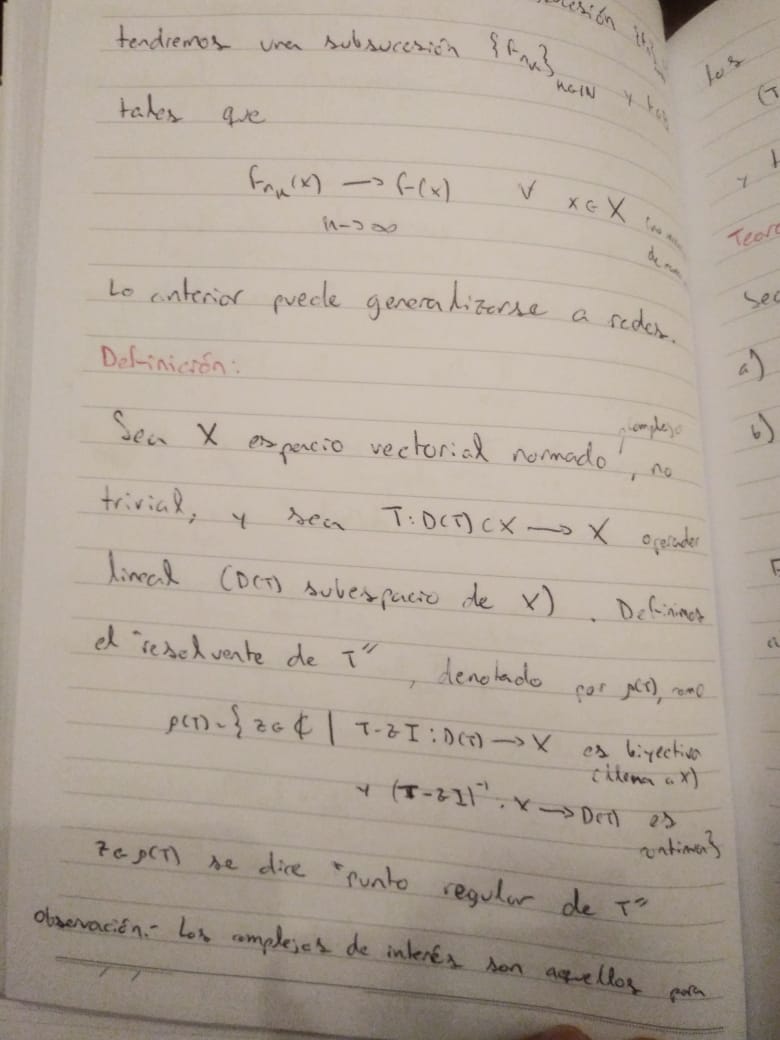 tendremos una subsucesión {f_{n_k}}_{k∈ℕ} y
tales que
f_{n_k}(x) → f(x) ∀ x ∈ X
k→∞
Lo anterior puede generalizarse a redes.
Definición:
complejo
Sea X espacio vectorial normado, no
trivial, y sea T: D(T) ⊂ X → X operador
lineal (D(T) subespacio de X). Definimos
el "resolvente de T", denotado por ρ(T), como
ρ(T) = { z ∈ ℂ | T-zI : D(T) → X es biyectiva
(llena a X)
y (T-zI)⁻¹: X → D(T) es
continua}
z ∈ ρ(T) se dice "punto regular de T"
Observación.- Los complejos de interés son aquellos para
los
(T
y
Teore
Sea
a)
b)